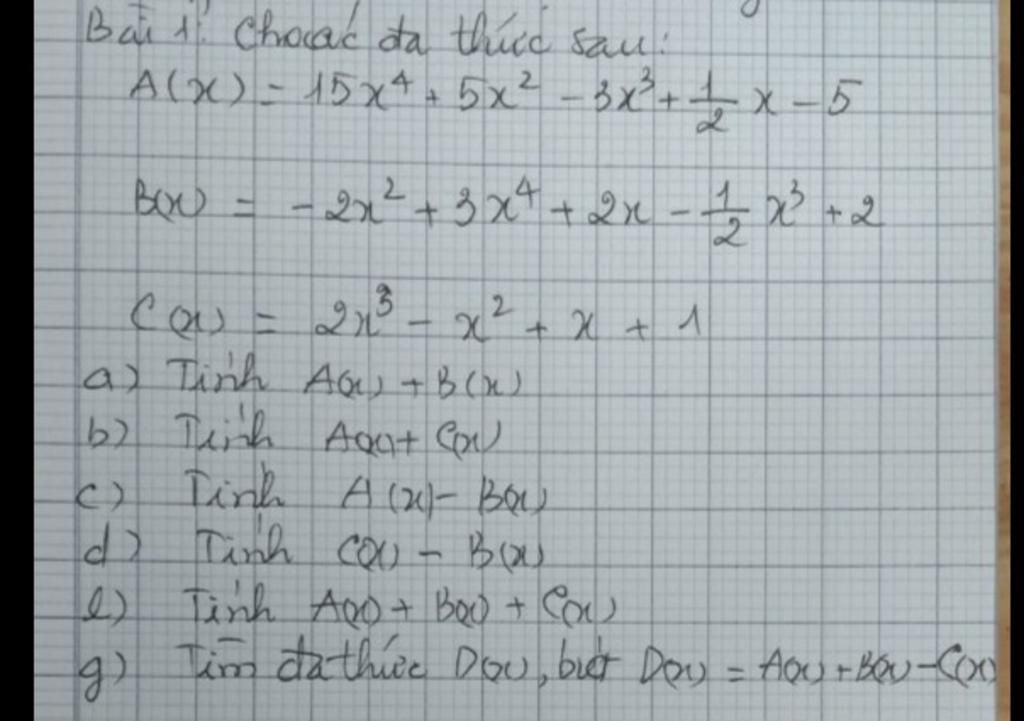 Bài 1: Cho các đa thức sau:
A(x) = 15x⁴ + 5x² - 3x³ + 1/2 x - 5
B(x) = -2x² + 3x⁴ + 2x - 1/2 x³ + 2
C(x) = 2x³ - x² + x + 1
a) Tính A(x) + B(x)
b) Tính A(x) + C(x)
c) Tính A(x) - B(x)
d) Tính C(x) - B(x)
e) Tính A(x) + B(x) + C(x)
g) Tìm đa thức D(x), biết D(x) = A(x) + B(x) - C(x)